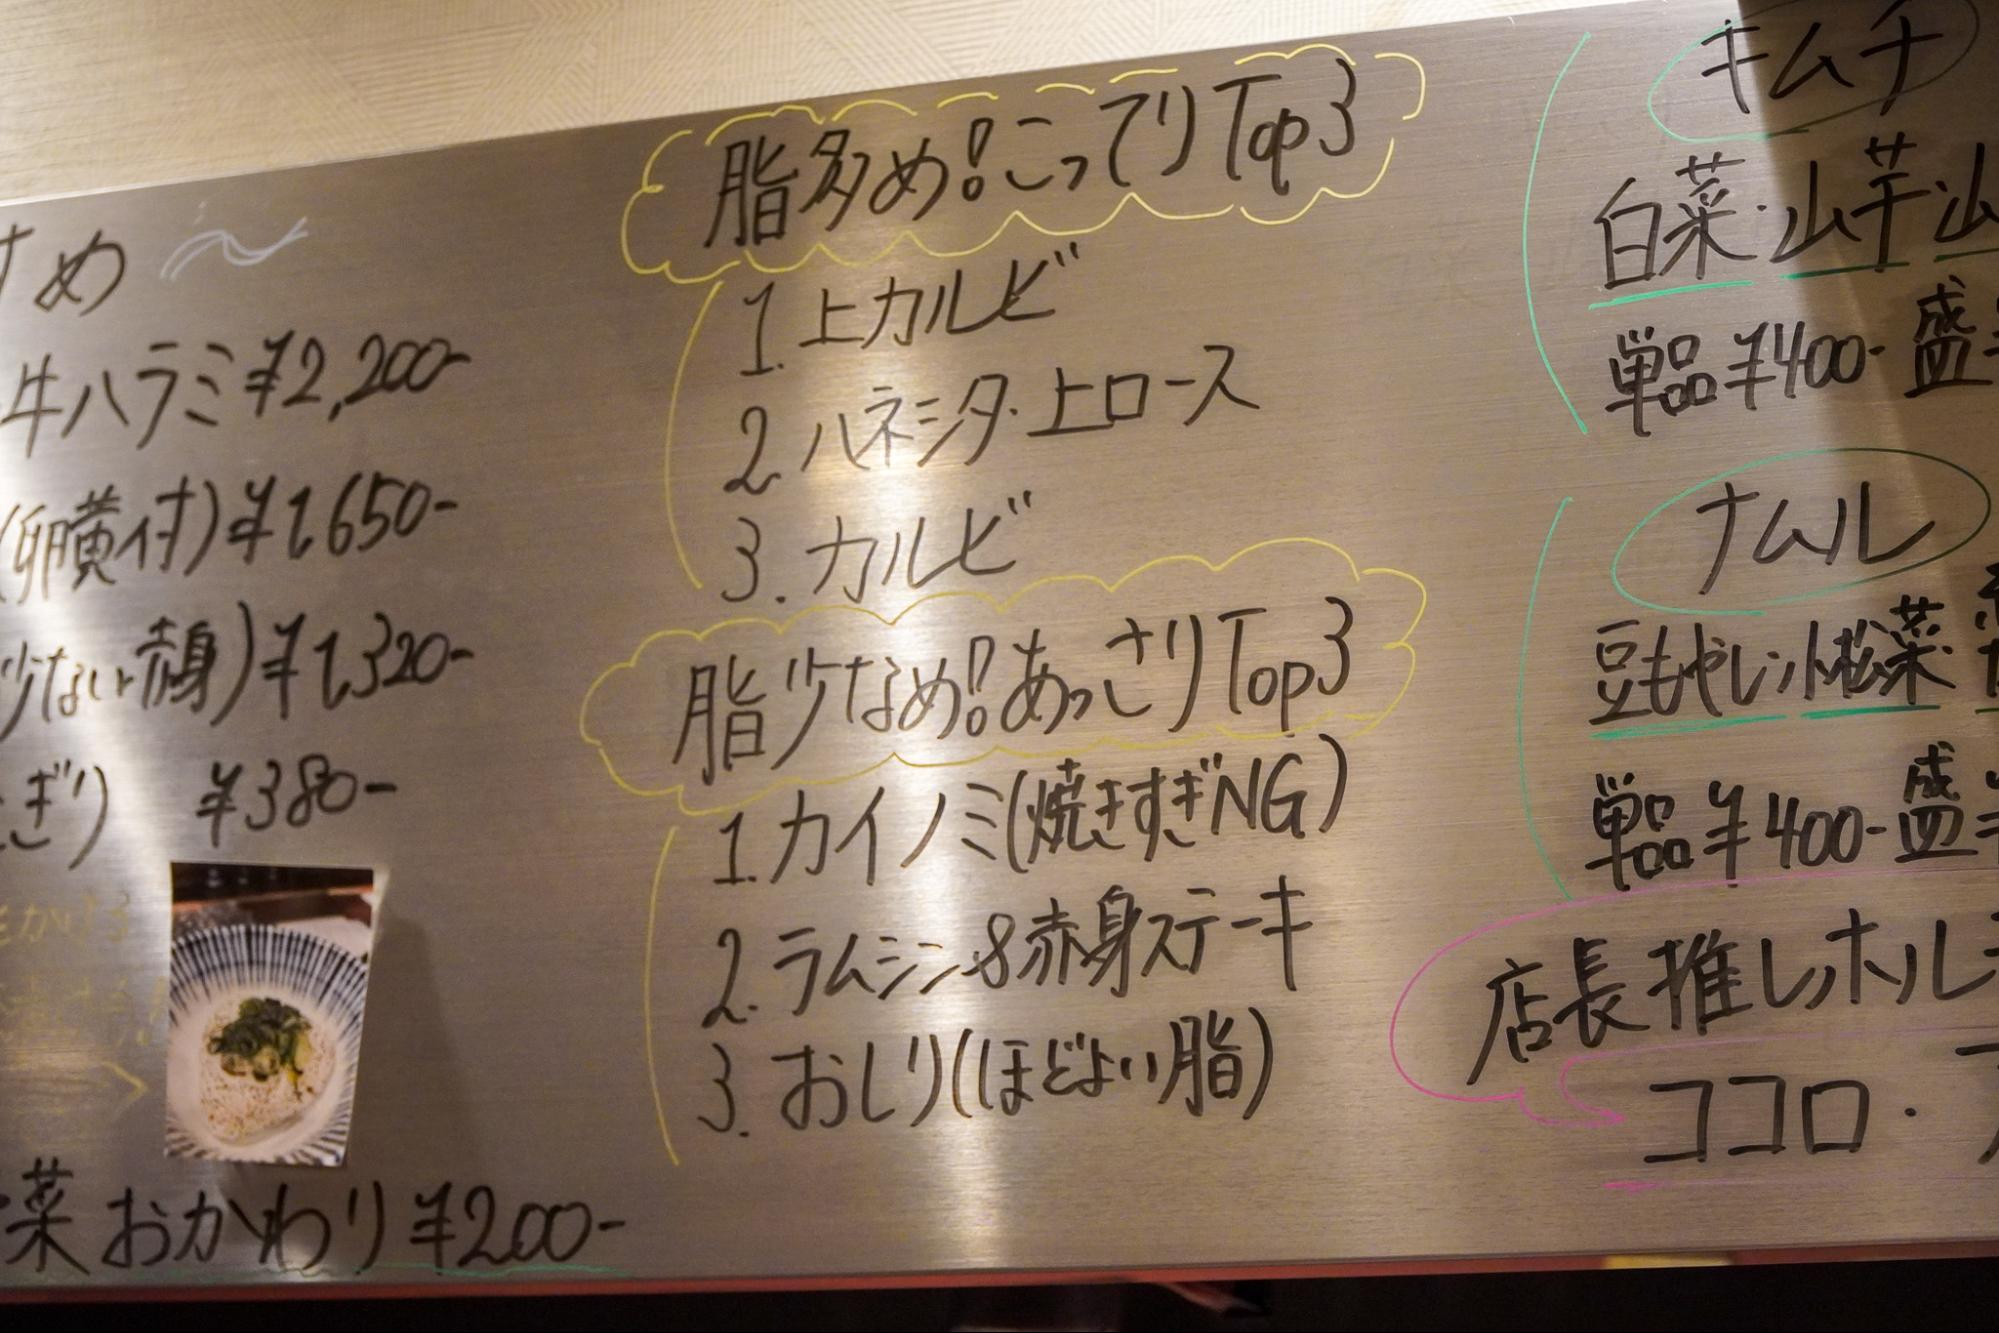 すめ
牛ハラミ ¥2,200-
(卵黄付) ¥1,650-
少ない赤身) ¥1,320-
ぎり) ¥380-
菜おかわり ¥200-
脂多め!こってりTop3
1. 上カルビ
2. ハネシタ・上ロース
3. カルビ
脂少なめ!あっさりTop3
1. カイノミ(焼きすぎNG)
2. ラムシン&赤身ステーキ
3. おしり(ほどよい脂)
キムチ
白菜・山芋・山
単品¥400- 盛
ナムル
豆もやし・小松菜
単品¥400- 盛
店長推しホル
ココロ・